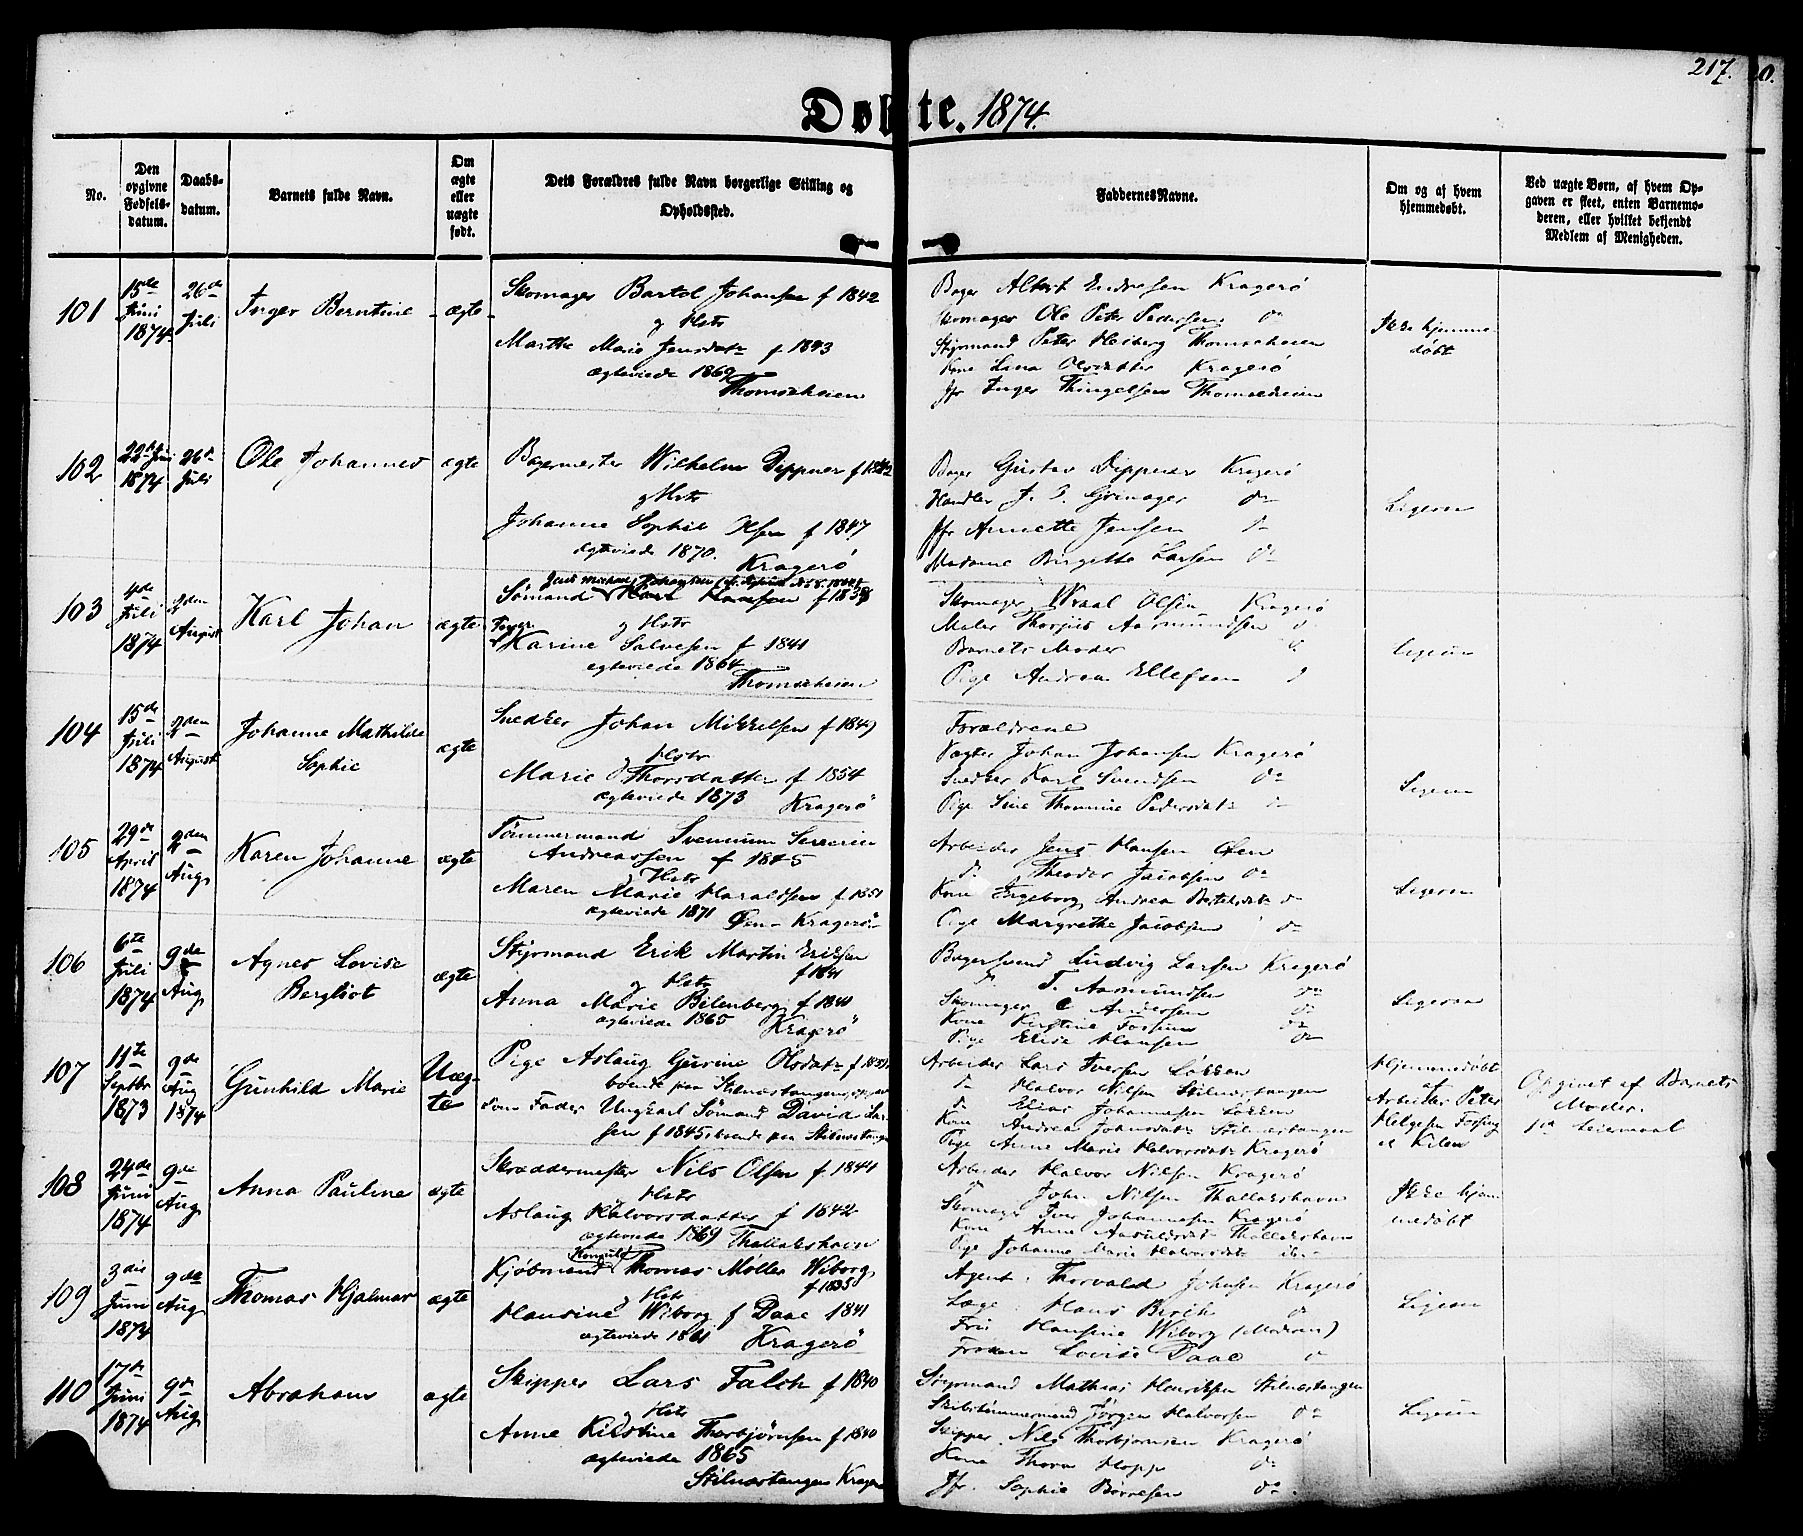 217.
Døbte. 1874.
No.
Den opgivne Fødsels-datum.
Daabs-datum.
Barnets fulde Navn.
Om ægte eller uægte født.
Dets Forældres fulde Navn borgerlige Stilling og Opholdssted.
Faddernes Navne.
Om og af hvem hjemmedøbt.
Ved uægte Børn, af hvem Opgaven er skeet, enten Barnemoderen, eller hvilket bekjendt Medlem af Menigheden.
101
15de Juni 1874
26de Juli
Inger Berntine
ægte
Skomager Bertol Johansen f 1842
og Hstr
Marthe Marie Jensdatr f 1843
ægteviede 1869
Thomasheien
Bager Albert Endresen Kragerø
Skomager Ole Peter Pedersen do
Styrmand Peter Heiberg Thomasheien
Kone Lena Olsdatter Kragerø
Jfr Inger Thingelsen Thomasheien
Ikke hjemmedøbt
102
22de Juni 1874
26de Juli
Ole Johannes
ægte
Bagermester Wilhelm Dippner f 1842
og Hstr
Johanne Sophie Olsen f 1847
ægteviede 1870.
Kragerø
Bager Gustav Dippner Kragerø
Handler J. Grimager do
Jfr Annette Jensen do
Madame Birgitte Larsen do
Ligesaa
103
4de Juli 1874
2den August
Karl Johan
ægte
Sømand
og Hstr
Karine Salvesen f 1841
ægteviede 1864
Thomasheien
Skomager Wraal Olsen Kragerø
Maler Thorjus Aasmundsen do
Barnets Moder do
Pige Andrea Ellefsen do
Ligesaa
104
15de Juli 1874
2den August
Johanne Mathilde Sophie
ægte
Snedker Johan Mikkelsen f 1849
og Hstr
Marie Thorsdatter f 1854
ægteviede 1873
Kragerø
Forældrene
Vagter Johan Johansen Kragerø
Snedker Karl Svendsen do
Pige Sine Thomine Pedersdatr do
Ligesaa
105
29de April 1874
2den Aug.
Karen Johanne
ægte
Tømmermand Svennum Severin
Andreassen f 1845
og Hstr
Maren Marie Haraldsen f 1851
ægteviede 1871
Øen - Kragerø
Arbeider Jens Hansen Øen
do Theodor Jacobsen do
Kone Ingeborg Andrea Bertelsdatr do
Pige Margrethe Jacobsen do
Ligesaa
106
6te Juli 1874
9de Aug
Agnes Lovise Bergliot
ægte
Styrmand Erik Martin Eriksen
f 1841
og Hstr
Anna Marie Bilenberg f 1841
ægteviede 1865
Kragerø
Bagersvend Ludvig Larsen Kragerø
do T. Aasmundsen do
Skomager C Andersen do
Kone Kirstine Fossum do
Pige Elise Hansen do
Ligesaa
107
11te Septbr 1873
9de Aug 1874
Gunhild Marie
Uægte
Pige Aslaug Gurine Olsdatr f 1851
boende paa Stilnæstangen, opgav
som Fader Ungkarl Sømand David Larsen f 1845, boende paa Stilnæstangen
Arbeider Lars Iversen Løkken
do Halvor Nilsen Stilnæstangen
do Elias Johannesen Løkken
Kone Andrea Johnsdatr Stilnæstangen
Pige Anne Marie Halvorsdatr Kragerø
Hjemmedøbt af Arbeider Peter Helgesen Fossing et Kilen
Opgivet af Barnets Moder.
1ste Leiermaal
108
24de Juni 1874
9de Aug
Anna Pauline
ægte
Skræddermester Nils Olsen f 1844
og Hstr
Aslaug Halvorsdatter f 1842
ægteviede 1869 Thallakshavn
Arbeider Halvor Nilsen Kragerø
do John Nilsen Thallakshavn
Skomager Iver Johannesen Kragerø
Kone Anne Aanuldsdatr Thallakshavn
Pige Johanne Marie Halvorsdatr ibm
Ikke hjemmedøbt
109
3die Juni 1874
9de Aug
Thomas Hjalmar
ægte
Kjøbmand Konsul Thomas Møller Wiborg
f 1835
og Hstr
Hansine Wiborg f Daae 1841
ægteviede 1861
Kragerø
Agent Thorvald Johnsen Kragerø
Læge Hans Birch do
Fru Hansine Wiborg (Moderen)
Frøken Lovise Daae do
Ligesaa
110
17de Juni 1874
9de Aug
Abraham
ægte
Skipper Lars Falch f 1840
og Hstr
Anne Kirstine Thorbjørnsen f 1840
ægteviede 1865
Stilnæstangen Kragerø
Styrmand Mathias Henriksen Stilnæstangen
Skibstømmermand Jørgen Halvorsen do
Skipper Nils Thorbjørnsen Kragerø
Kone Thora Hopp do
Jfr. Sophie Børresen do
Ligesaa